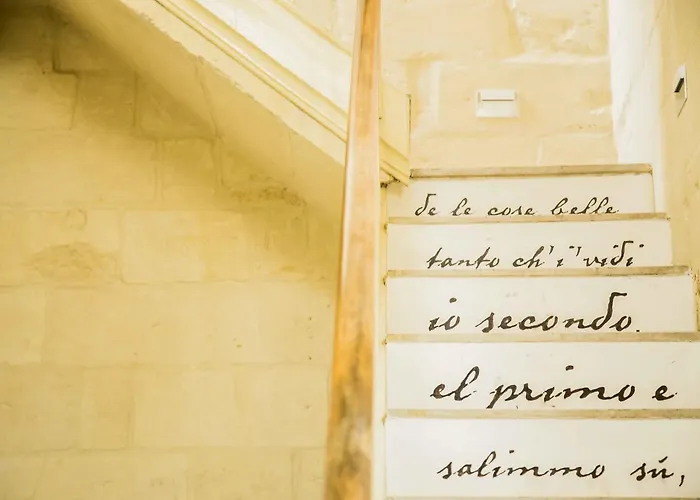 de le cose belle
tanto ch'i' vidi
io secondo.
el primo e
salimmo sú,